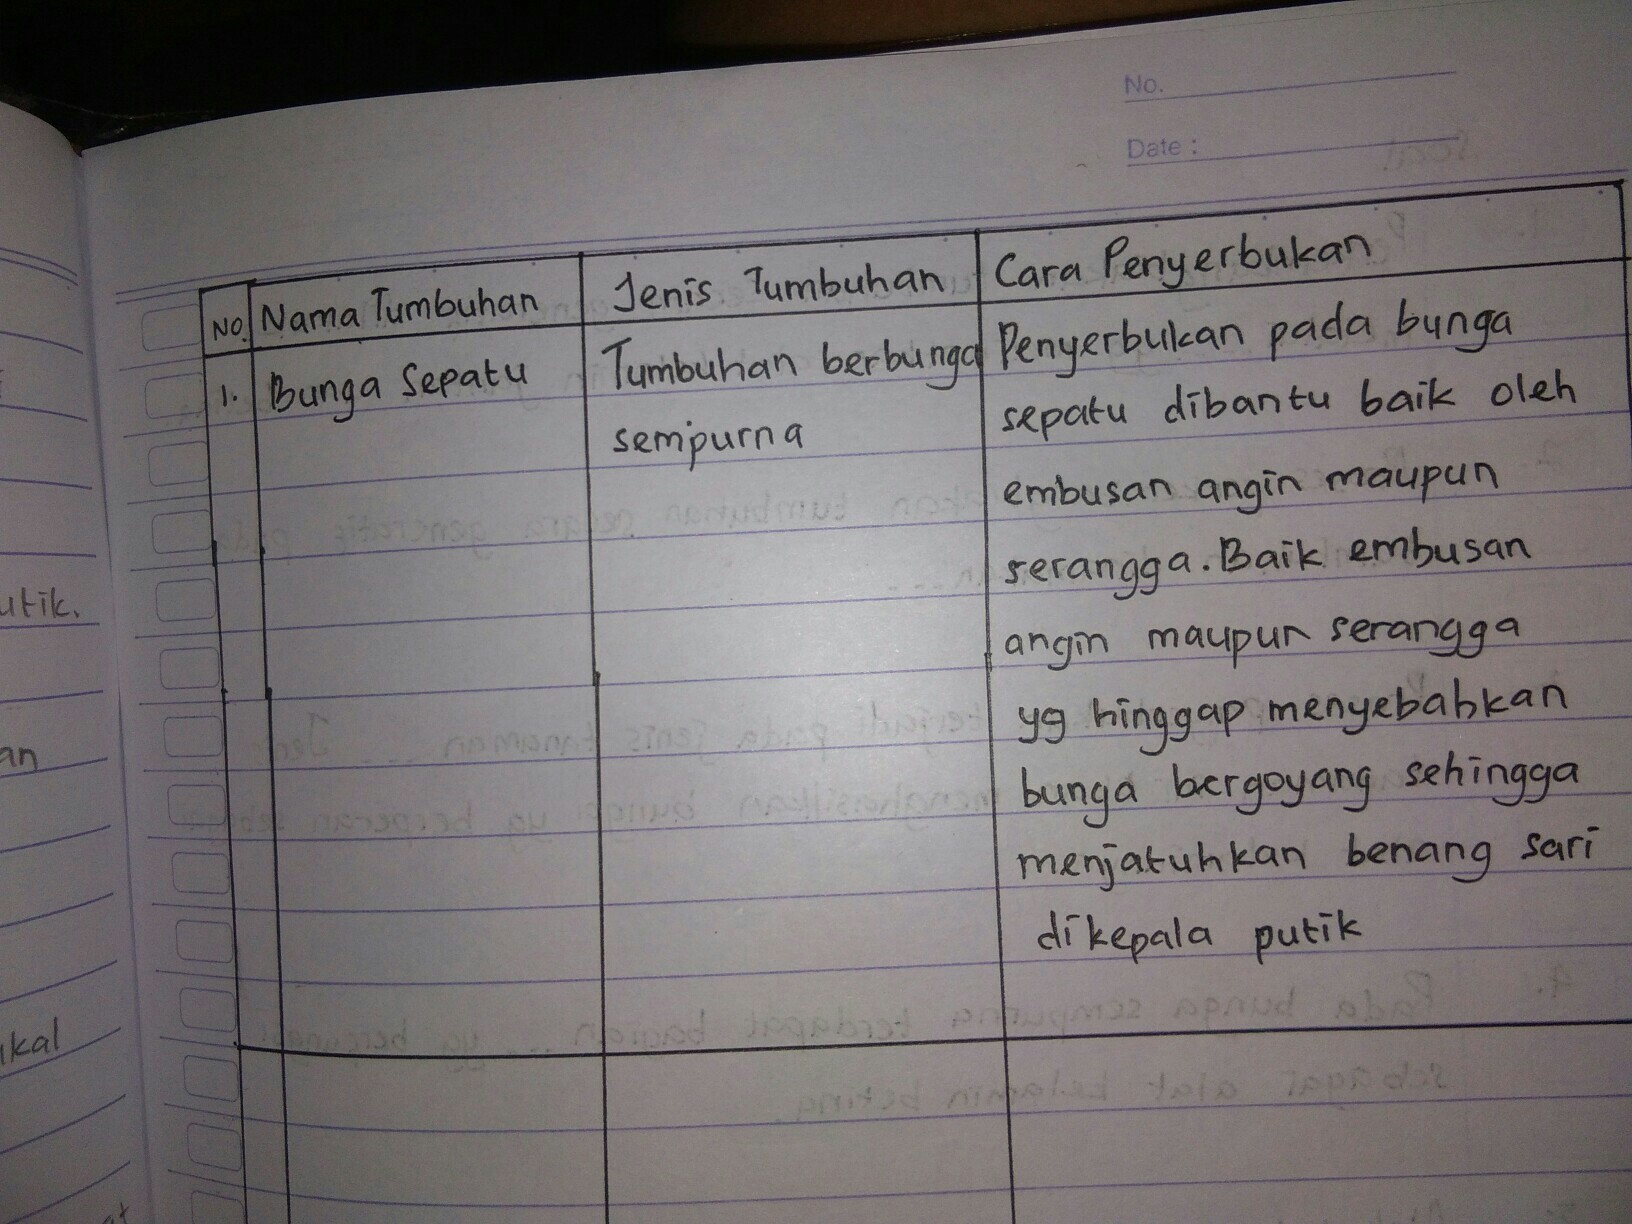 No.
Date :
NO. Nama Tumbuhan Jenis Tumbuhan Cara Penyerbukan
1. Bunga Sepatu Tumbuhan berbunga Penyerbukan pada bunga
sempurna sepatu dibantu baik oleh
embusan angin maupun
serangga. Baik embusan
angin maupun serangga
yg hinggap menyebabkan
bunga bergoyang sehingga
menjatuhkan benang sari
dikepala putik
utik.
an
ikal